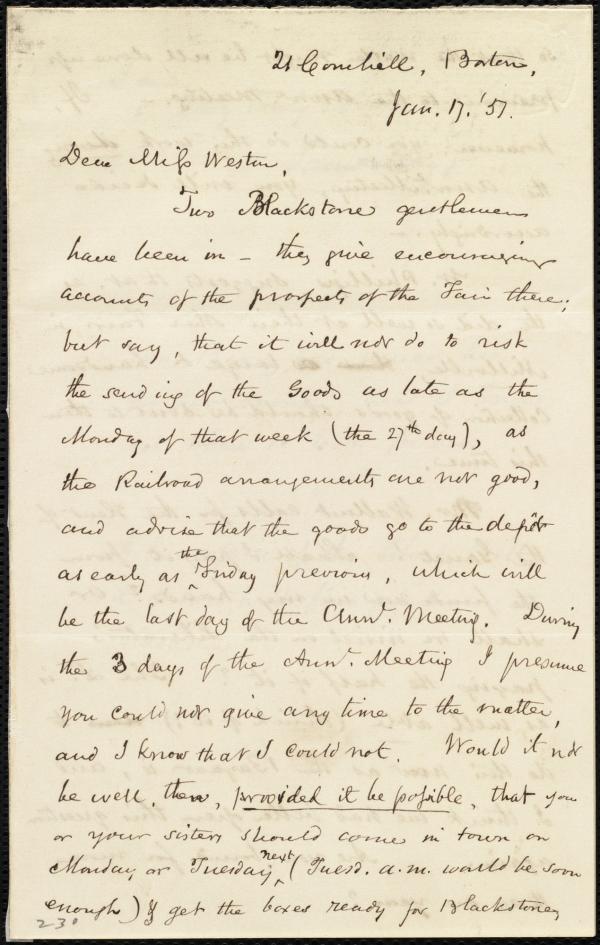 21 Cornhill, Boston,
Jan. 17. '51.
Dear Miss Weston,
Two Blackstone gentlemen
have been in – they give encouraging
accounts of the prospects of the Fair there;
but say, that it will not do to risk
the sending of the Goods as late as the
Monday of that week (the 27th day), as
the Railroad arrangements are not good,
and advise that the goods go to the depôt
as early as the Friday previous, which will
be the last day of the Annl. Meeting. During
the 3 days of the Annl. Meeting I presume
you could not give any time to the matter,
and I know that I could not. Would it not
be well, then, provided it be possible, that you
or your sisters should come in town on
Monday or Tuesday next (Tuesd. a.m. would be soon
enough) & get the boxes ready for Blackstone,
230